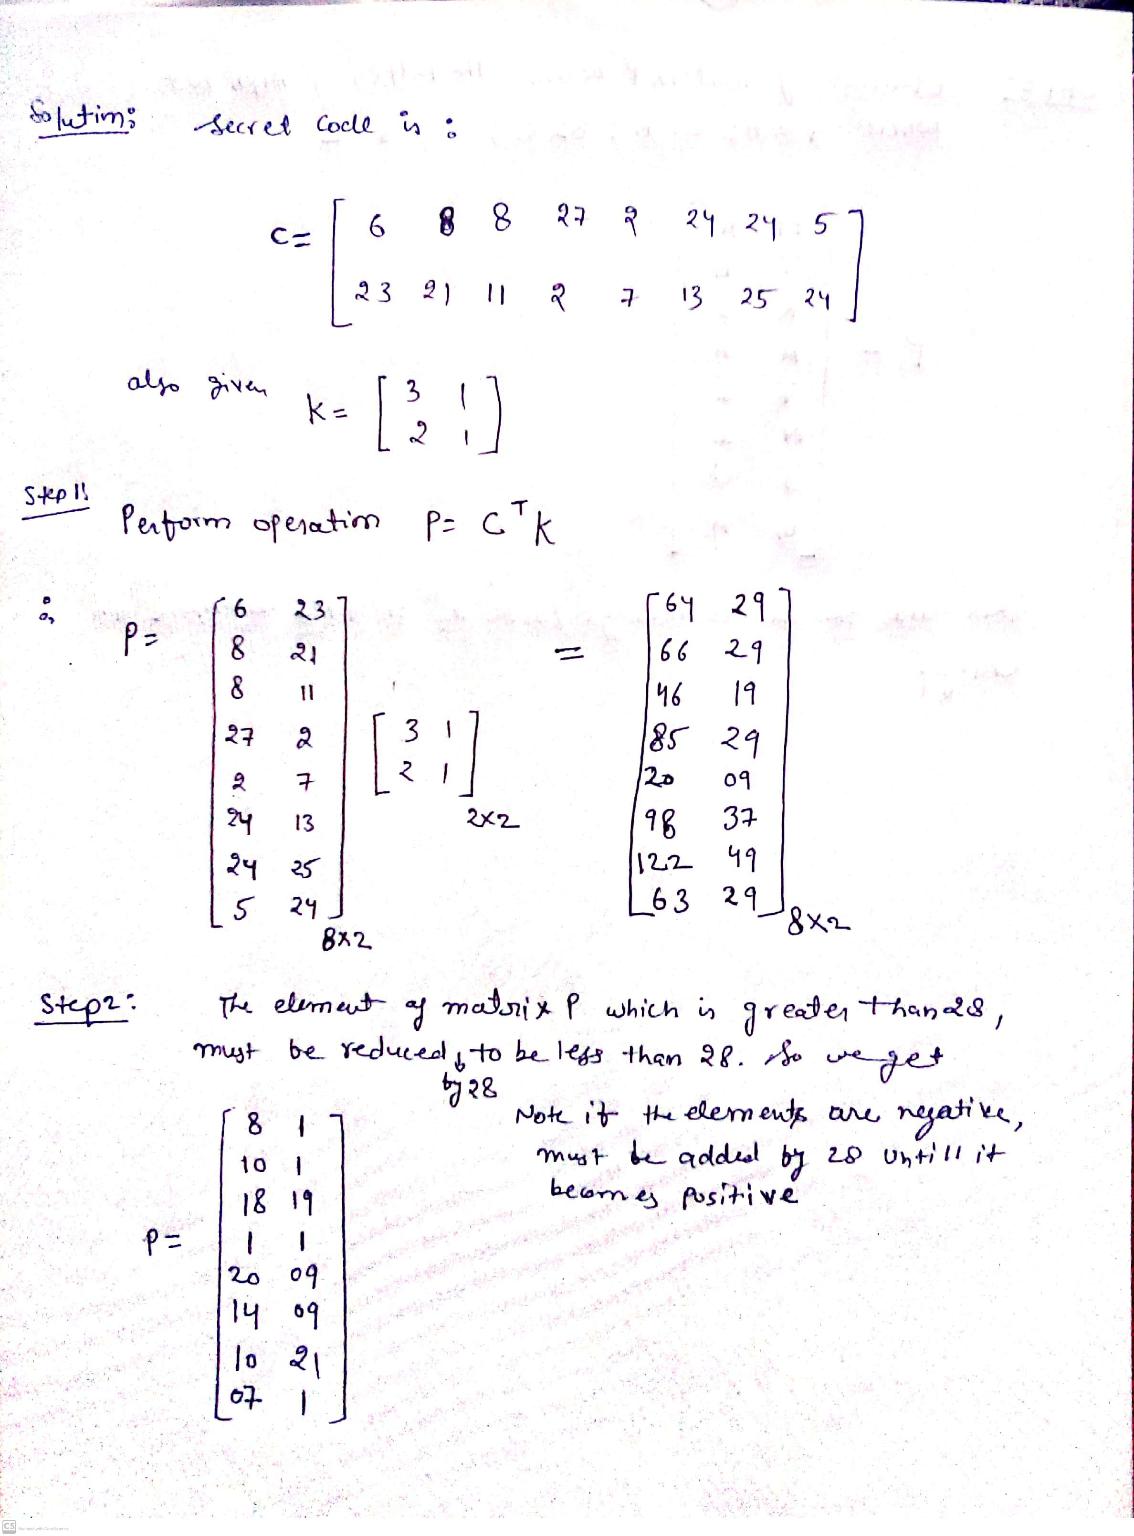 Solution: Secret Code is :
C = [ 6 8 8 27 2 24 24 5
23 21 11 2 7 13 25 24 ]
also given K = [ 3 1
2 1 ]
Step 1:
Perform operation P = C^T K
∴ P = [ 6 23
8 21
8 11
27 2
2 7
24 13
24 25
5 24 ] 8×2
[ 3 1
2 1 ] 2×2
= [ 64 29
66 29
46 19
85 29
20 09
98 37
122 49
63 29 ] 8×2
Step 2: The element of matrix P which is greater than 28,
must be reduced to be less than 28. So we get
by 28
Note if the elements are negative,
must be added by 28 untill it
becomes positive
P = [ 8 1
10 1
18 19
1 1
20 09
14 09
10 21
07 1 ]
CS